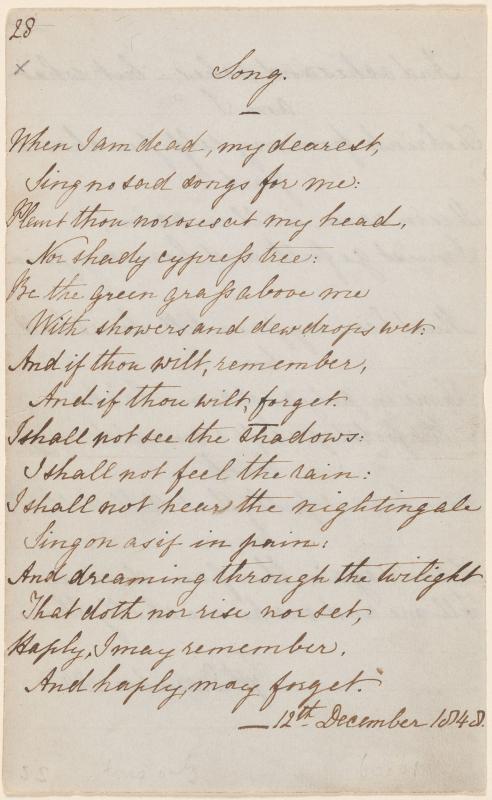 28
×
Song.
When I am dead, my dearest,
Sing no sad songs for me:
Plant thou no roses at my head,
Nor shady cypress tree:
Be the green grass above me
With showers and dewdrops wet:
And if thou wilt, remember,
And if thou wilt, forget.
I shall not see the shadows:
I shall not feel the rain:
I shall not hear the nightingale
Sing on as if in pain:
And dreaming through the twilight
That doth nor rise nor set,
Haply, I may remember,
And haply, may forget.
— 12th December 1848.